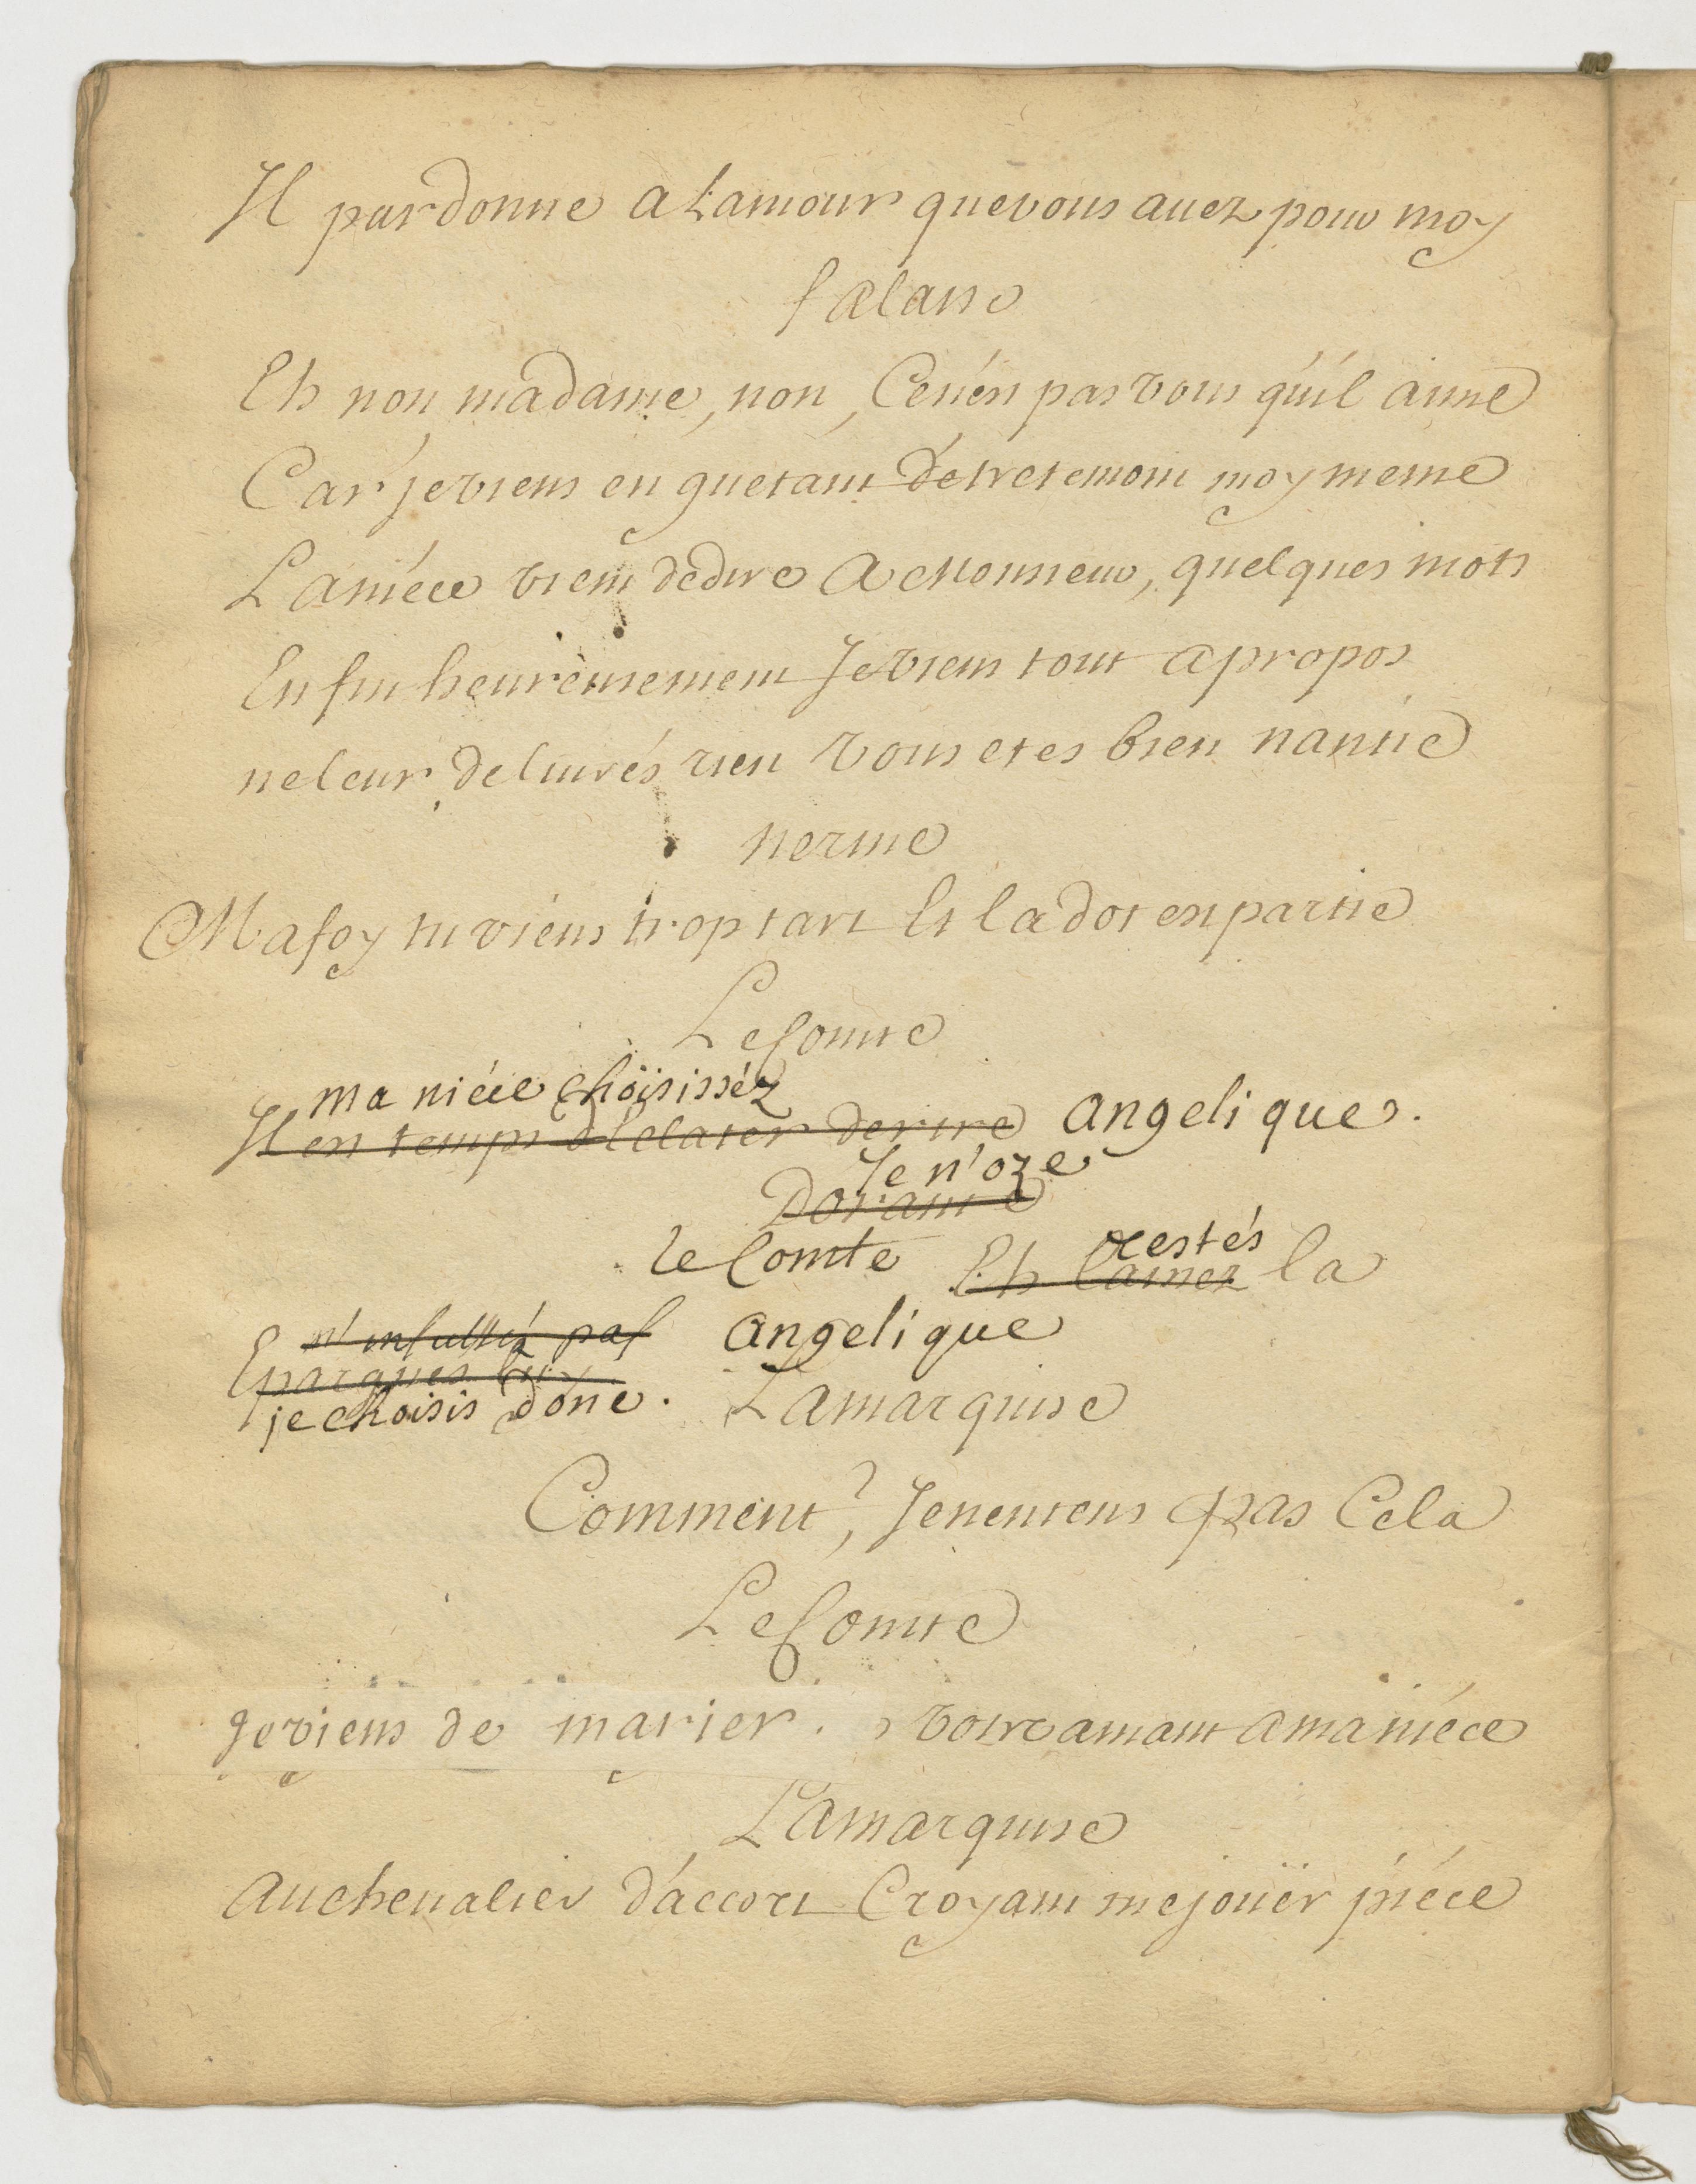 Il pardonne a Lamour quevous auez pour moy
falaise
Eh non madame, non, Cenést pas vous qu'il aime
Car jeviens en guetant détretemoin moymeme
Laniéce vient dedire a Monsieur, quelques mots
Enfin heureusement Jeviens tout apropos
neleur deliurés rien vous etes bien nantie
nerine
Mafoy tu viens trop tart Et ladot est partie
LeComte
ma niéce Choïsissèz
Il est temps declater derire Angelique.
Je n'oze
Dorante
le Comte Eh laissez restés la
n'insultéz pas Angelique
Epargnes
je choisis donc. Lamarquise
Comment? Jenentens pas Cela
LeComte
Jeviens de marier. votre amant amaniéce
Lamarquise
auchevalier d'accort Croyant mejoüer piéce